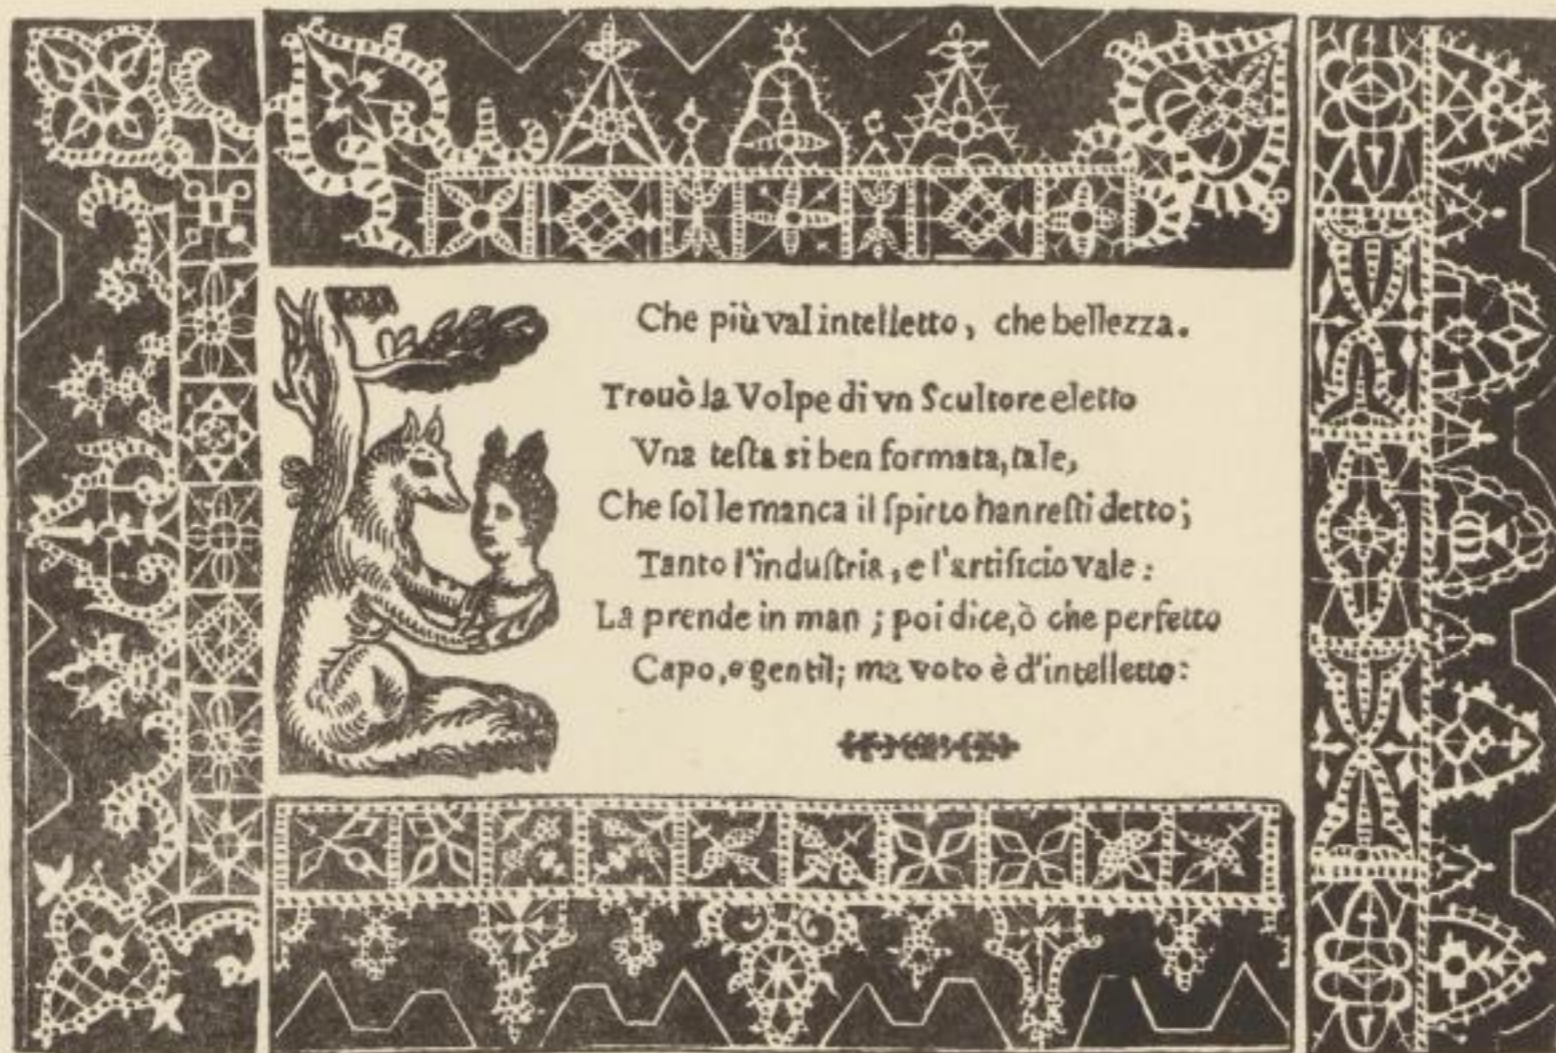 Che più val intelletto, che bellezza.
Trouò la Volpe di vn Scultore eletto
Vna teſta si ben formata, tale,
Che ſol le manca il ſpirto hanreſti detto;
Tanto l'induſtria, e l'artificio vale:
La prende in man; poi dice, ò che perfetto
Capo, e gentil; ma voto è d'intelletto: